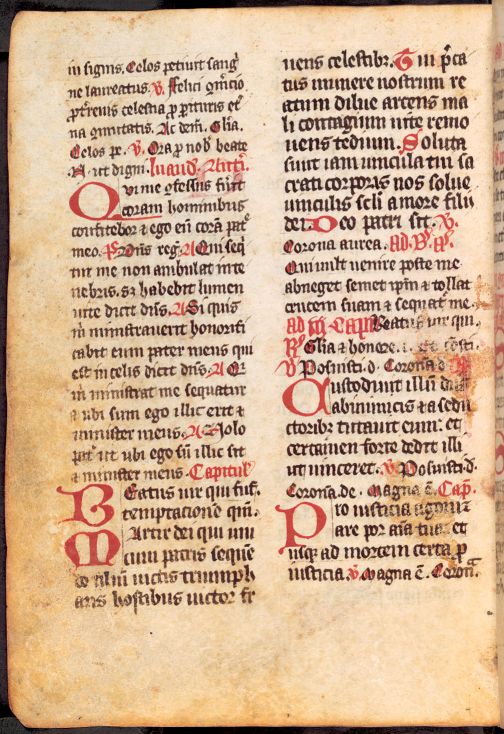 in signis. Celos petiuit sang̃
ne laureatus. V. Felici ꝯm̃cio
celestia ꝓ
Ac dem̃. Glia.
Celos pe. V. Ora ꝓ nob̃ beate
N. ut digni. laud. Antiꝰ.
Qui me ꝯfessus fũit
coram hominibus
confitebor & ego eũ corã pat̃
meo. pš. Dñs reg̃. A Qui seq̃
tur me non ambulat in te
nebris. sz habebit lumen
uite dicit dñs. A Si quis
m̃ ministrauerit honorifi
cabit eum pater meus qui
est in celis dicit dñs. A Q̃
m̃ ministrat me sequatur
& ubi sum ego illic erit &
minister meus. A Uolo
pat̃ ut ubi ego sũ illic sit
& minister meus. Capitul̃
Beatus uir qui suf̃.
temptacione qm̃.
Martir dei qui uni
cum patris seque
do filiũ uictis triumph
ans hostibus uictor fr
uens celestibꝫ. Tui p̃ca
tus munere nostrum re
atum dilue arcens ma
li contagium uite remo
uens tedium. Soluta
sunt iam uincula tui sa
crati corporis nos solue
uinculis scl̃i amore filii
dei. Deo patri sit. V.
Corona aurea. ad. Bñ. pš.
Qui uult uenire post me
abneget semet ip̃m & tollat
crucem suam & sequat̃ me.
ad iij. Cap̃. Beatus uir qui.
R̃. Glia & honore.
V. Posuisti. d. Corona. d.
Custodiuit illũ dñs
ab inimicis & a sedu
ctoribꝫ tutauit eum. et
certamen forte dedit illi
ut uinceret. V. Posuisti. d.
Corona. de. Magna ẽ. Cap̃.
Pro iusticia agoniz
are pro aĩa tua. et
usqꝫ ad mortem certa ꝓ
iusticia. V. Magna ẽ. Coron̄.